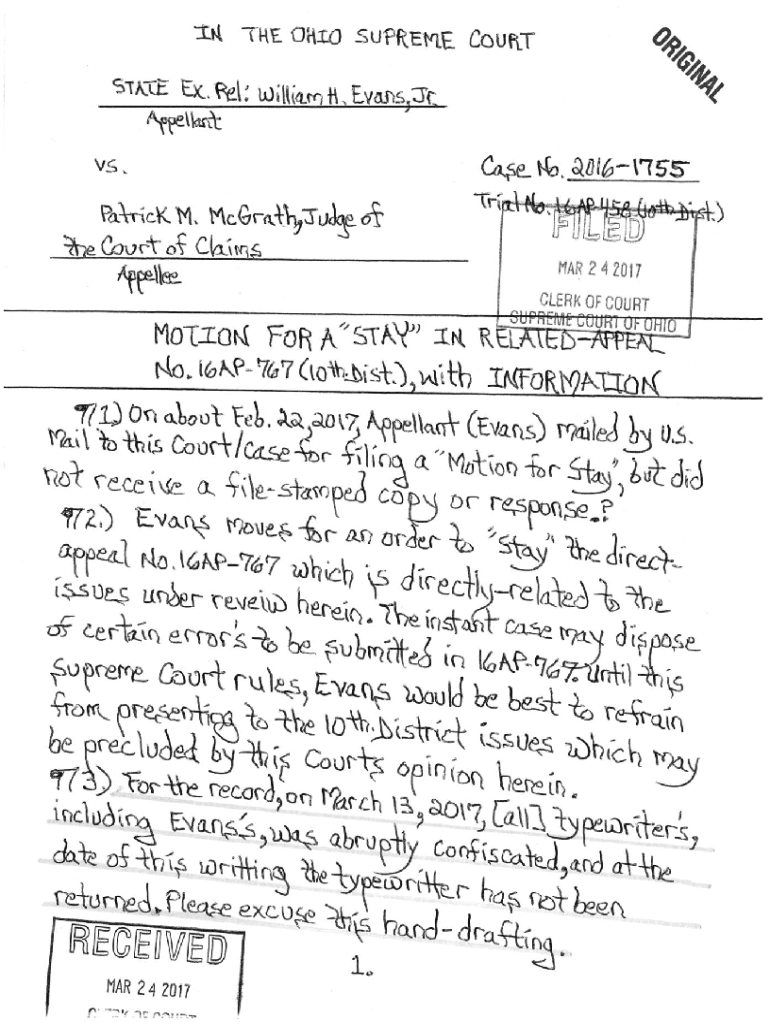 IN THE OHIO SUPREME COURT
ORIGINAL
STATE Ex. Rel: William H. Evans, Jr.
Appellant
vs.
Case No. 2016-1755
Trial No. 16AP-458 (10th Dist.)
Patrick M. McGrath, Judge of
the Court of Claims
Appellee
FILED
MAR 24 2017
CLERK OF COURT
SUPREME COURT OF OHIO
MOTION FOR A "STAY" IN RELATED-APPEAL
No. 16AP-767 (10th. Dist.), with INFORMATION
¶1.) On about Feb. 22, 2017, Appellant (Evans) mailed by U.S.
Mail to this Court/Case for filing a "Motion for Stay", but did
not receive a file-stamped copy or response.?
¶2.) Evans moves for an order to "Stay" the direct-
appeal No. 16AP-767 which is directly-related to the
issues under reveiw herein. The instant case may dispose
of certain error's to be submitted in 16AP-767. Until this
Supreme Court rules, Evans would be best to refrain
from presenting to the 10th. District issues which may
be precluded by this Courts opinion herein.
¶3.) For the record, on March 13, 2017, [all] typewriter's,
including Evans's, was abruptly confiscated, and at the
date of this writting the typewritter has not been
returned. Please excuse this hand-drafting.
1.
RECEIVED
MAR 24 2017
CLERK OF COURT